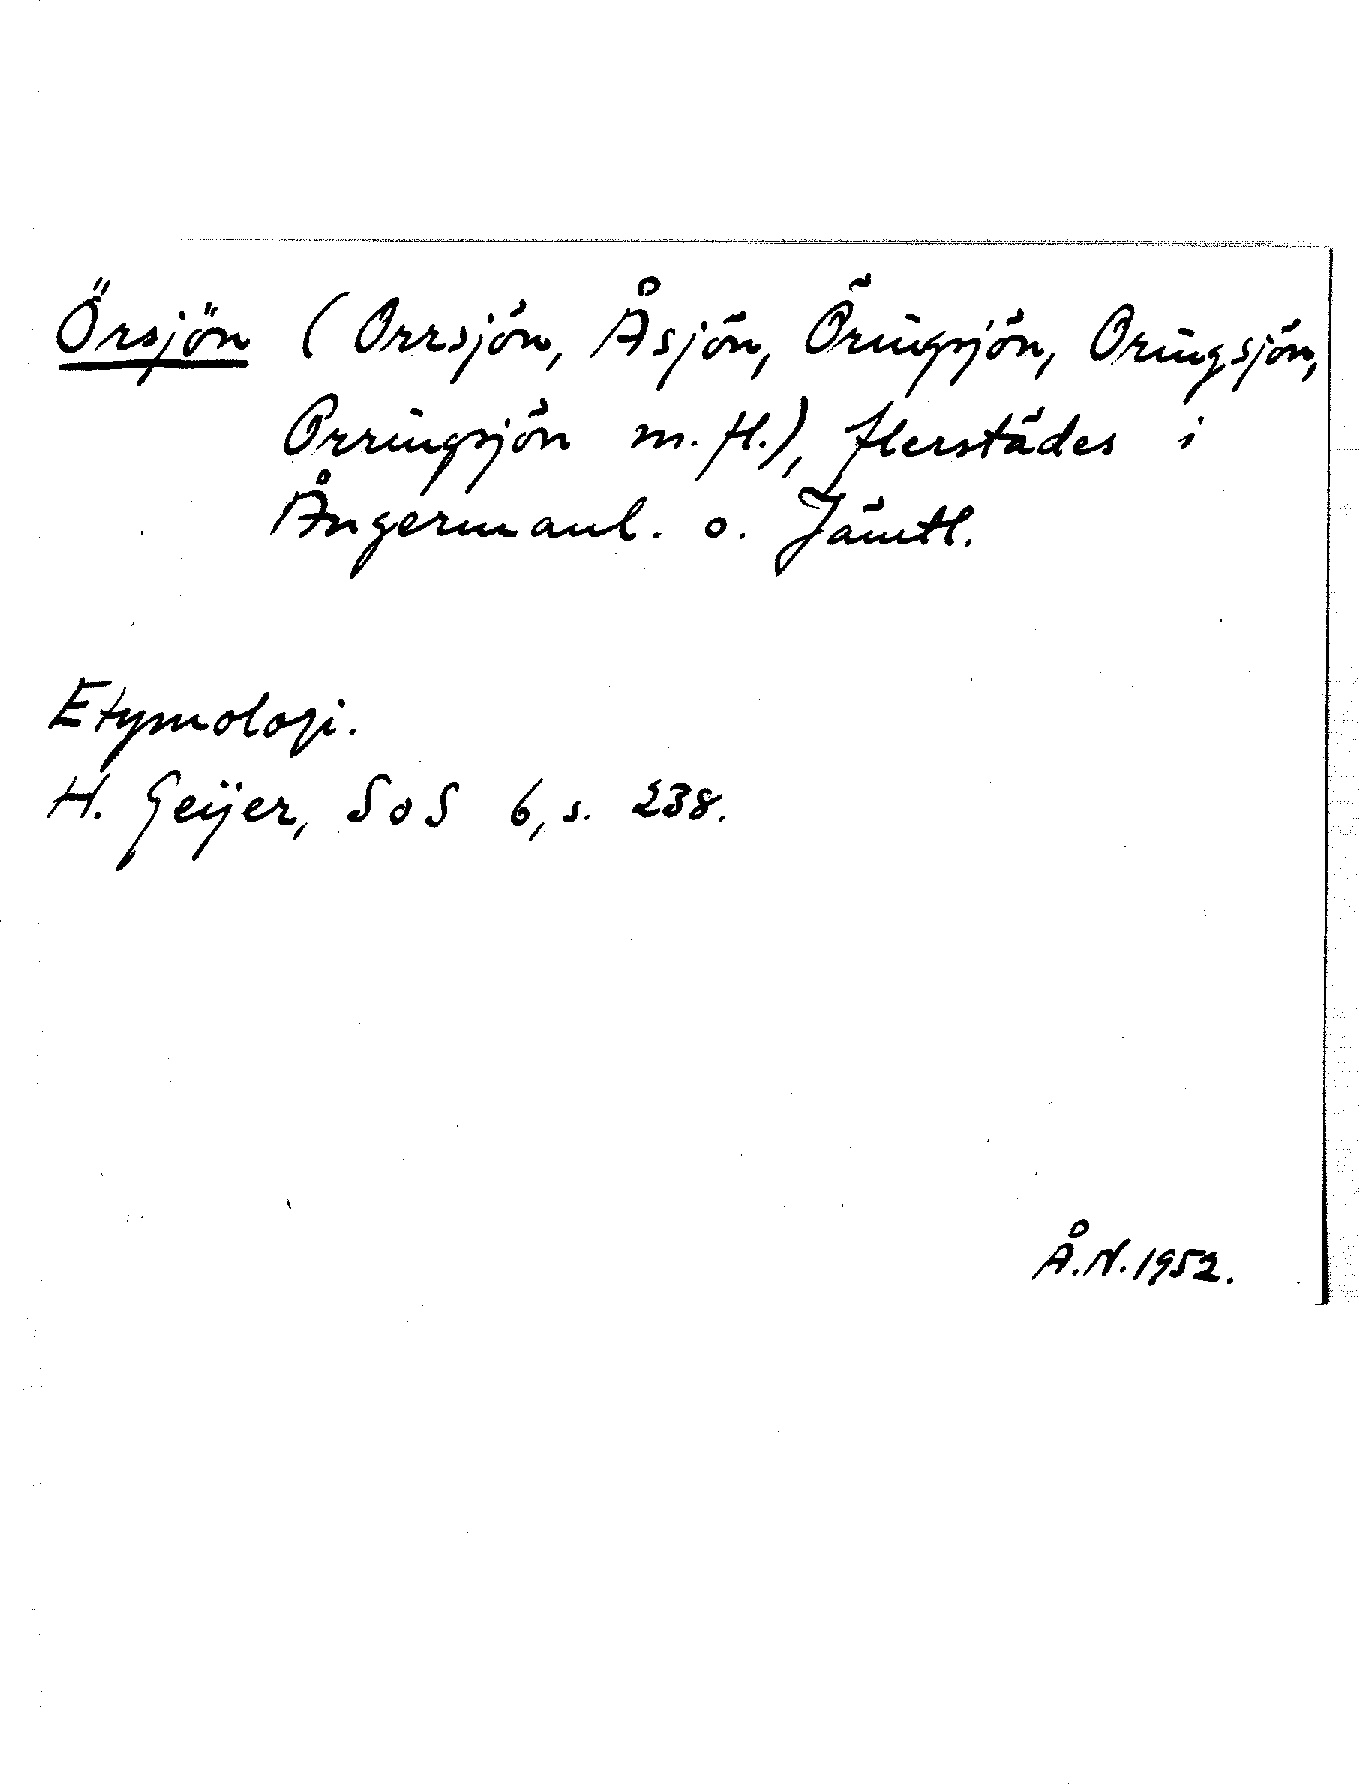 Örsjön (Orrsjön, Åsjön, Öringsjön, Oringsjön,
Orringsjön m.fl.), flerstädes i
Ångermanl. o. Jämtl.
Etymologi.
H. Geijer, SoS 6, s. 238.
Å.N. 1952.